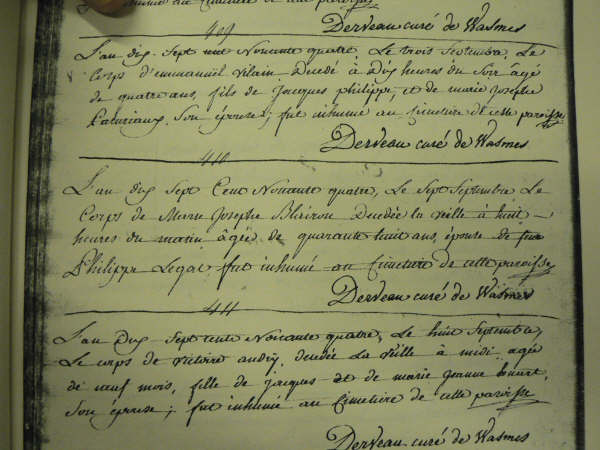 inhumé au Cimetiere de cette paroisse
Derveau curé de Wasmes
409
L'an dix Sept cent Nonante quatre, Le trois Septembre Le
Corps d'emmanuel vilain Decedé à Dix heures du Soir âgé
de quatre ans, fils de Jacques philippe, et de marie Josephe
Paturiaux, Son épouse; fut inhumé au Cimetiere de cette paroisse
Derveau curé de Wasmes
410
L'an dix Sept Cent Nonante quatre, Le Sept Septembre Le
Corps de Marie Josephe Decedée la veille à huit
heures du matin, âgée de quarante huit ans, épouse de
Philippe Legat fut inhumé au Cimetiere de cette paroisse
Derveau curé de Wasmes
411
L'an dix Sept cent Nonante quatre, Le huit Septembre,
Le corps de Victoire audin, decedée La veille à midi agée
de neuf mois, fille de jacques et de marie jeanne
Son épouse; fut inhumé au Cimetiere de cette paroisse
Derveau curé de Wasmes